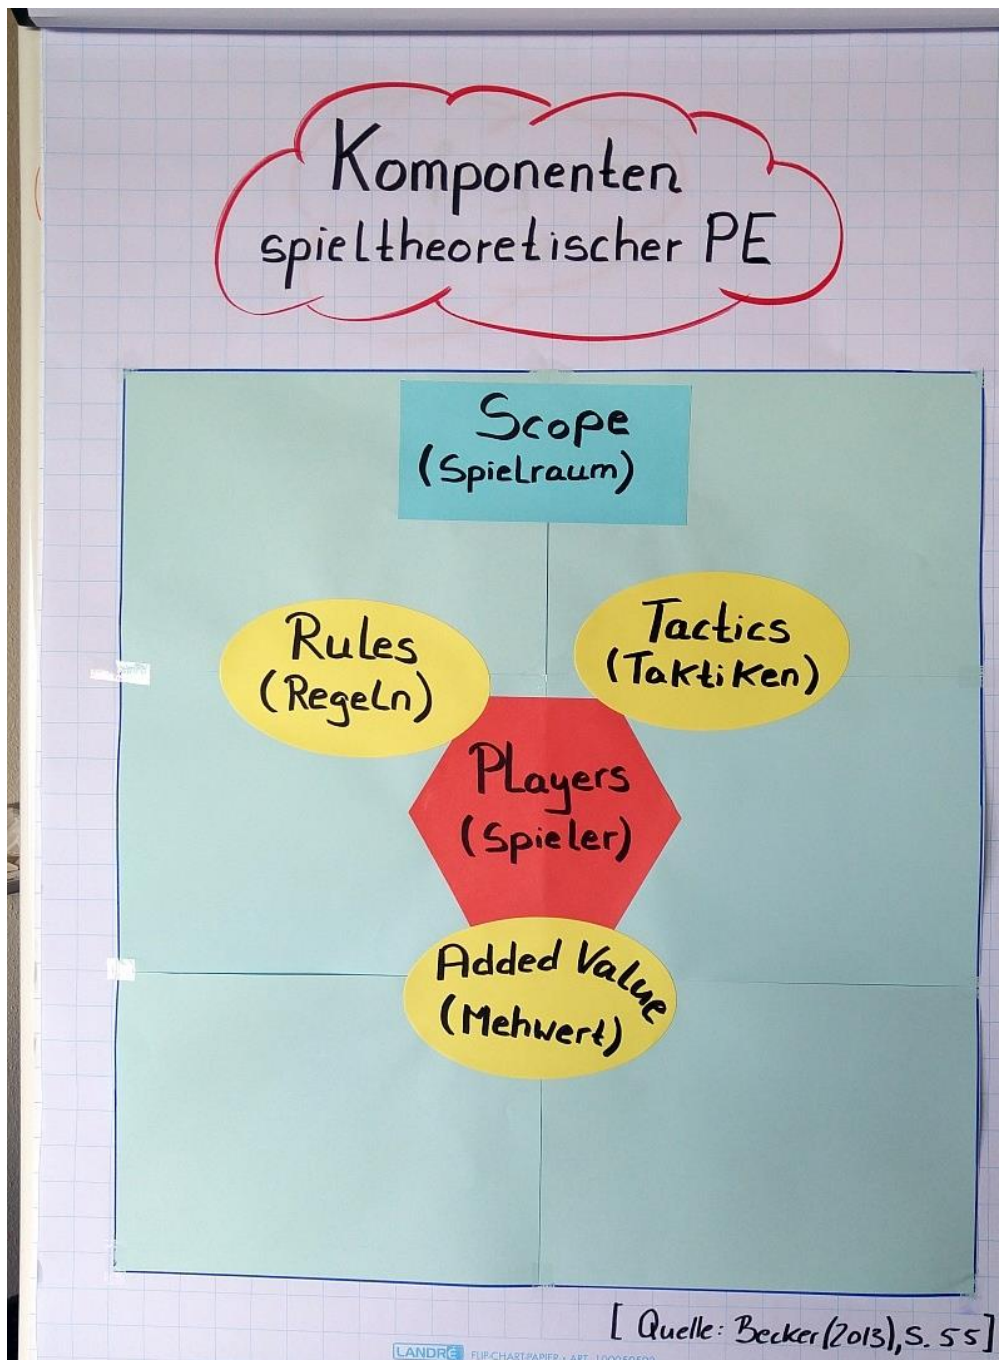 Komponenten
spieltheoretischer PE
Scope
(Spielraum)
Rules
(Regeln)
Tactics
(Taktiken)
Players
(Spieler)
Added Value
(Mehwert)
[Quelle: Becker (2013), S. 55]
LANDRÉ FLIP-CHART-PAPIER • ART.